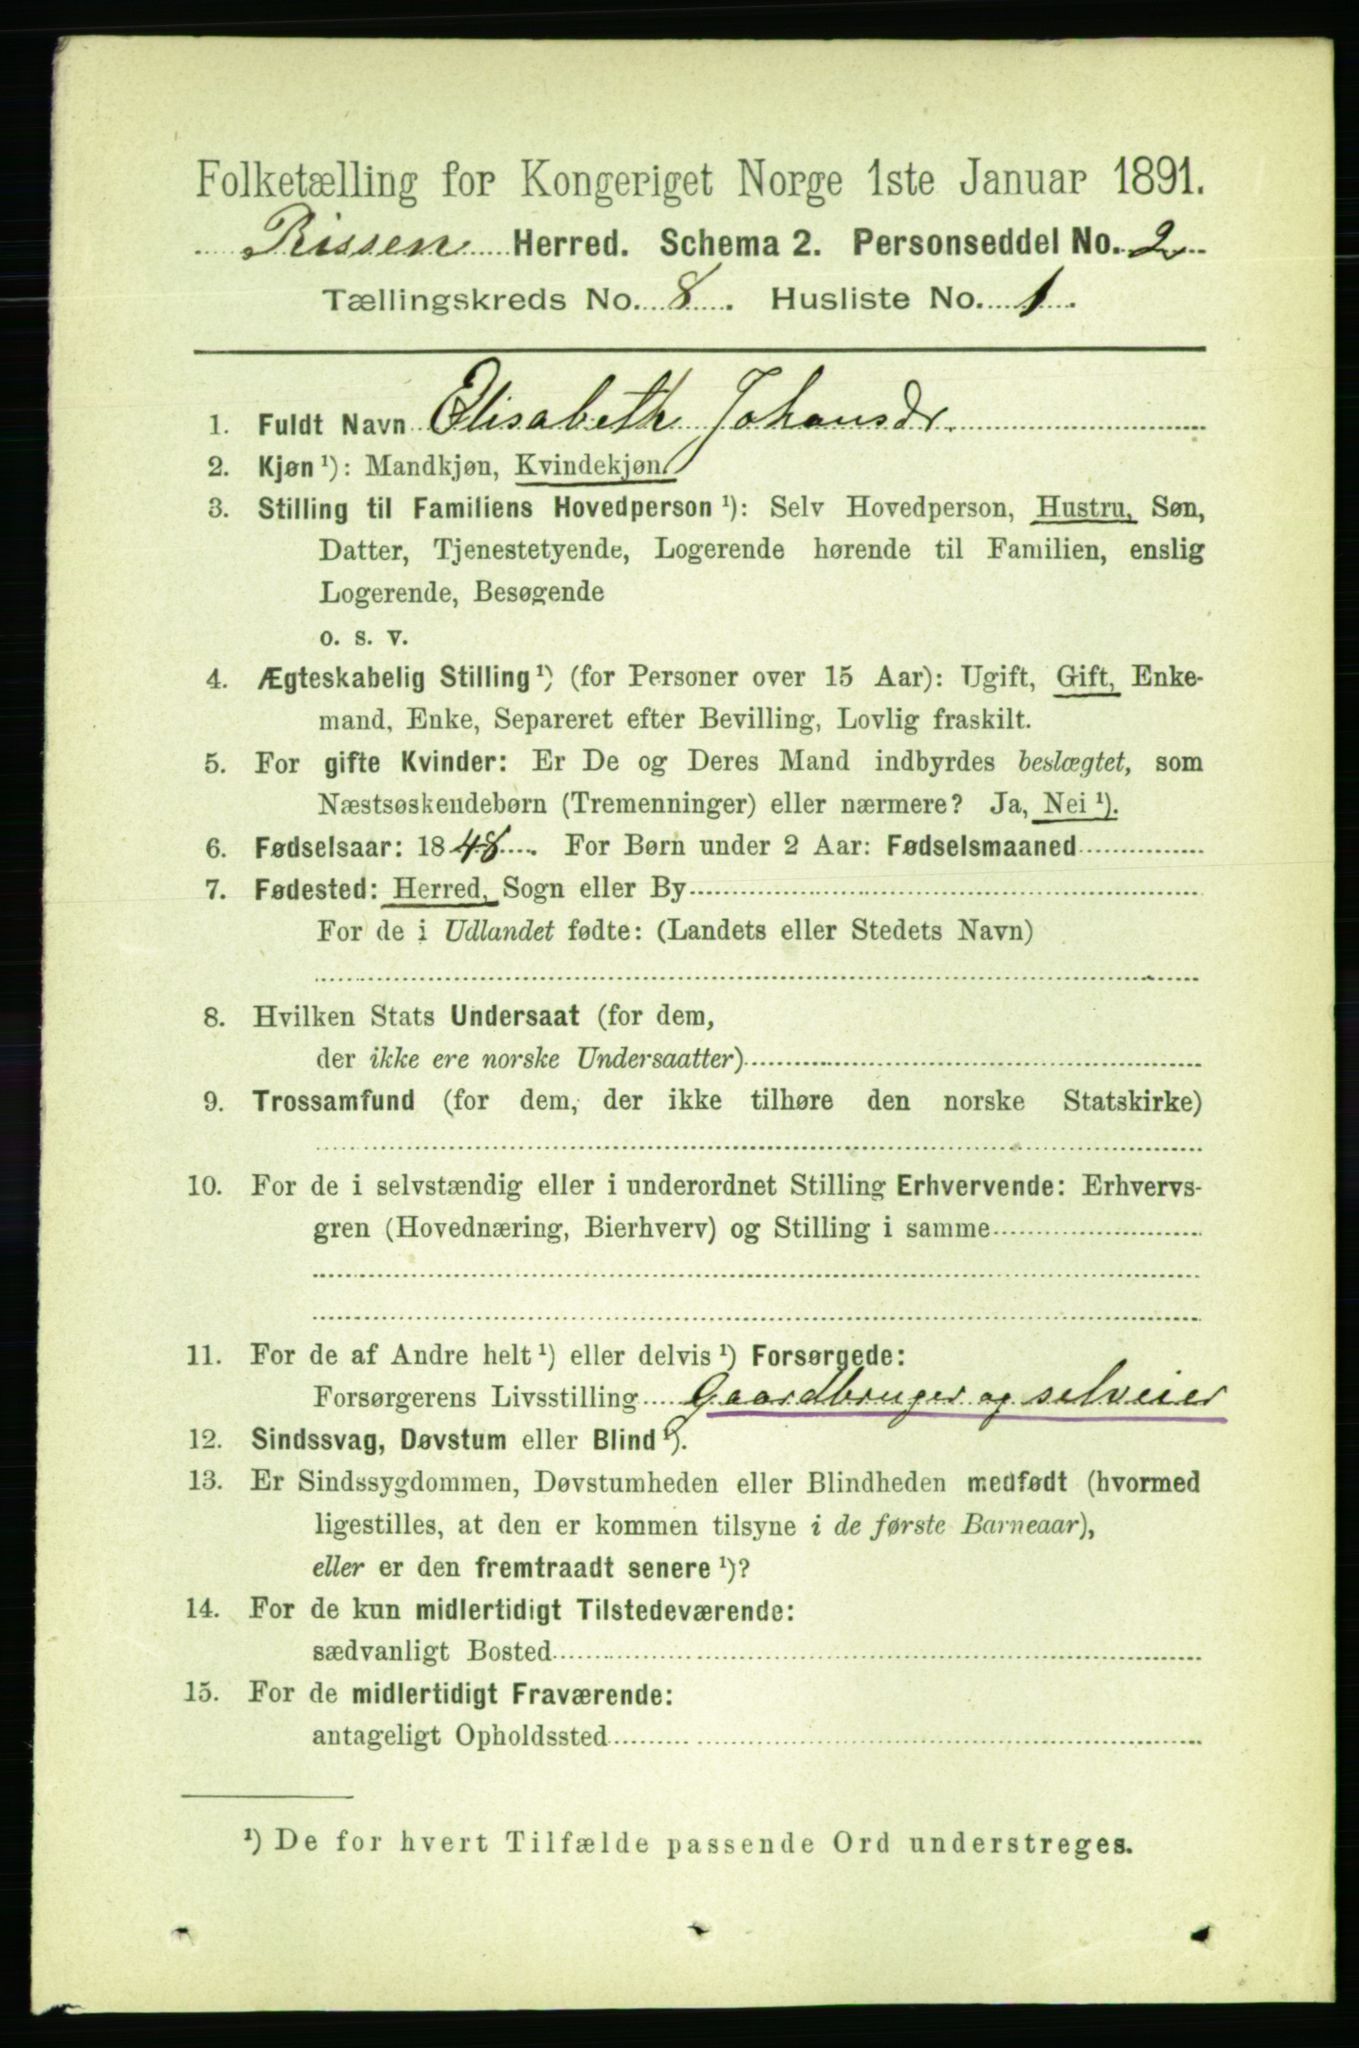 Folketælling for Kongeriget Norge 1ste Januar 1891.
Rissen Herred. Schema 2. Personseddel No. 2
Tællingskreds No. 8. Husliste No. 1.
1. Fuldt Navn Elisabeth Johansdr.
2. Kjøn ¹): Mandkjøn, Kvindekjøn
3. Stilling til Familiens Hovedperson ¹): Selv Hovedperson, Hustru, Søn,
Datter, Tjenestetyende, Logerende hørende til Familien, enslig
Logerende, Besøgende
o. s. v.
4. Ægteskabelig Stilling ¹) (for Personer over 15 Aar): Ugift, Gift, Enke-
mand, Enke, Separeret efter Bevilling, Lovlig fraskilt.
5. For gifte Kvinder: Er De og Deres Mand indbyrdes beslægtet, som
Næstsøskendebørn (Tremenninger) eller nærmere? Ja, Nei ¹).
6. Fødselsaar: 1848. For Børn under 2 Aar: Fødselsmaaned
7. Fødested: Herred, Sogn eller By
For de i Udlandet fødte: (Landets eller Stedets Navn)
8. Hvilken Stats Undersaat (for dem,
der ikke ere norske Undersaatter)
9. Trossamfund (for dem, der ikke tilhøre den norske Statskirke)
10. For de i selvstændig eller i underordnet Stilling Erhvervende: Erhvervs-
gren (Hovednæring, Bierhverv) og Stilling i samme
11. For de af Andre helt ¹) eller delvis ¹) Forsørgede:
Forsørgerens Livsstilling Gaardbruger og selveier
12. Sindssvag, Døvstum eller Blind ¹).
13. Er Sindssygdommen, Døvstumheden eller Blindheden medfødt (hvormed
ligestilles, at den er kommen tilsyne i de første Barneaar),
eller er den fremtraadt senere ¹)?
14. For de kun midlertidigt Tilstedeværende:
sædvanligt Bosted
15. For de midlertidigt Fraværende:
antageligt Opholdssted
¹) De for hvert Tilfælde passende Ord understreges.